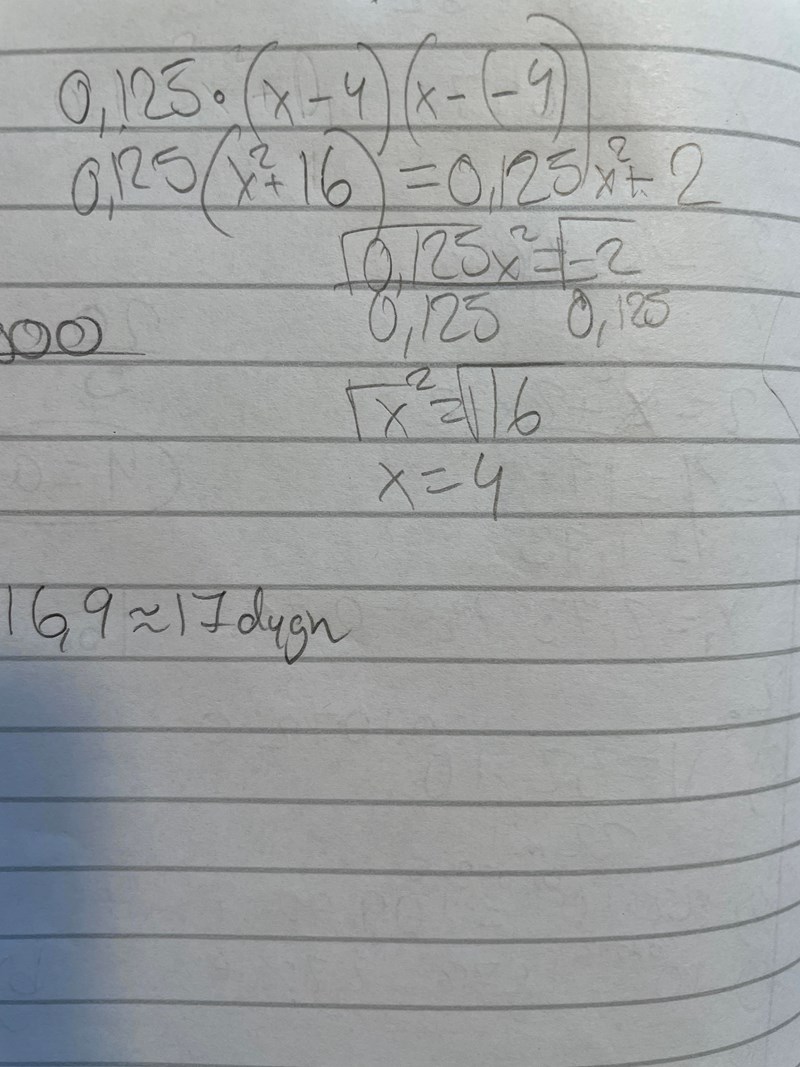 0,125•(x-4)(x-(-4))
0,125(x²+16)=0,125x²+2
√0,125x²=√-2
0,125 0,125
00
√x²=√16
x=4
16,9≈17dygn